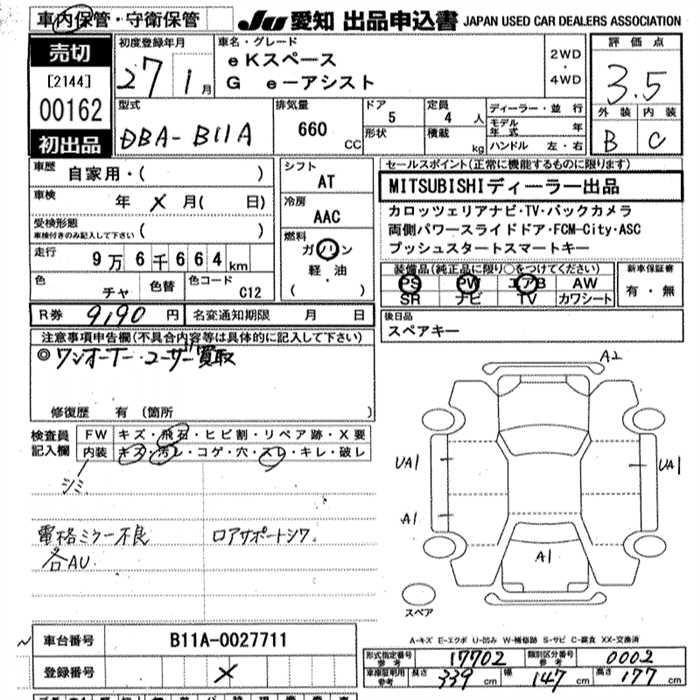 車内保管・守衛保管
JU 愛知 出品申込書 JAPAN USED CAR DEALERS ASSOCIATION
売切
[2144]
00162
初出品
初度登録年月
27 年 1月
車名・グレード
eKスペース
G e-アシスト
2WD
・
4WD
評価点
3.5
外装 内装
B C
型式
DBA-B11A
排気量
660 CC
ドア
5
形状
定員
4 人
積載 kg
ディーラー・並行
モデル年式 年
ハンドル 左・右
車歴 自家用・( )
車検 年 × 月( 日)
受検形態 ( )
車検付きのみ記入して下さい
走行 9万6千664km
色 チャ
色替
色コード C12
シフト
AT
冷房
AAC
燃料
ガソリン
軽・油
( )
セールスポイント(正常に機能するものに限ります)
MITSUBISHIディーラー出品
カロッツェリアナビ・TV・バックカメラ
両側パワースライドドア・FCM-City・ASC
プッシュスタートスマートキー
装備品(純正品に限り○をつけてください)
PS PW エアB AW
SR ナビ TV カワシート
新車保証書
有・無
R券 9,190 円
名変通知期限 月 日
後日品
スペアキー
注意事項申告欄(不具合内容等は具体的に記入して下さい)
◎ワンオーナー・ユーザー買取
修復歴 有 (箇所 )
検査員
記入欄
FW キズ・飛石・ヒビ割・リペア跡・X要
内装 キズ・汚レ・コゲ・穴・スレ・キレ・破レ
シミ
電格ミラー不良
各AU
ロアサポートシワ
A2
UA1
UA1
A1
A1
スペア
A-キズ E-エクボ U-凹み W-補修跡 S-サビ C-腐食 XX-交換済
車台番号 B11A-0027711
登録番号 ×
形式指定番号 参考 17702
類別区分番号 参考 0002
車庫証明用 参考 長さ 339 cm 幅 147 cm 高さ 177 cm